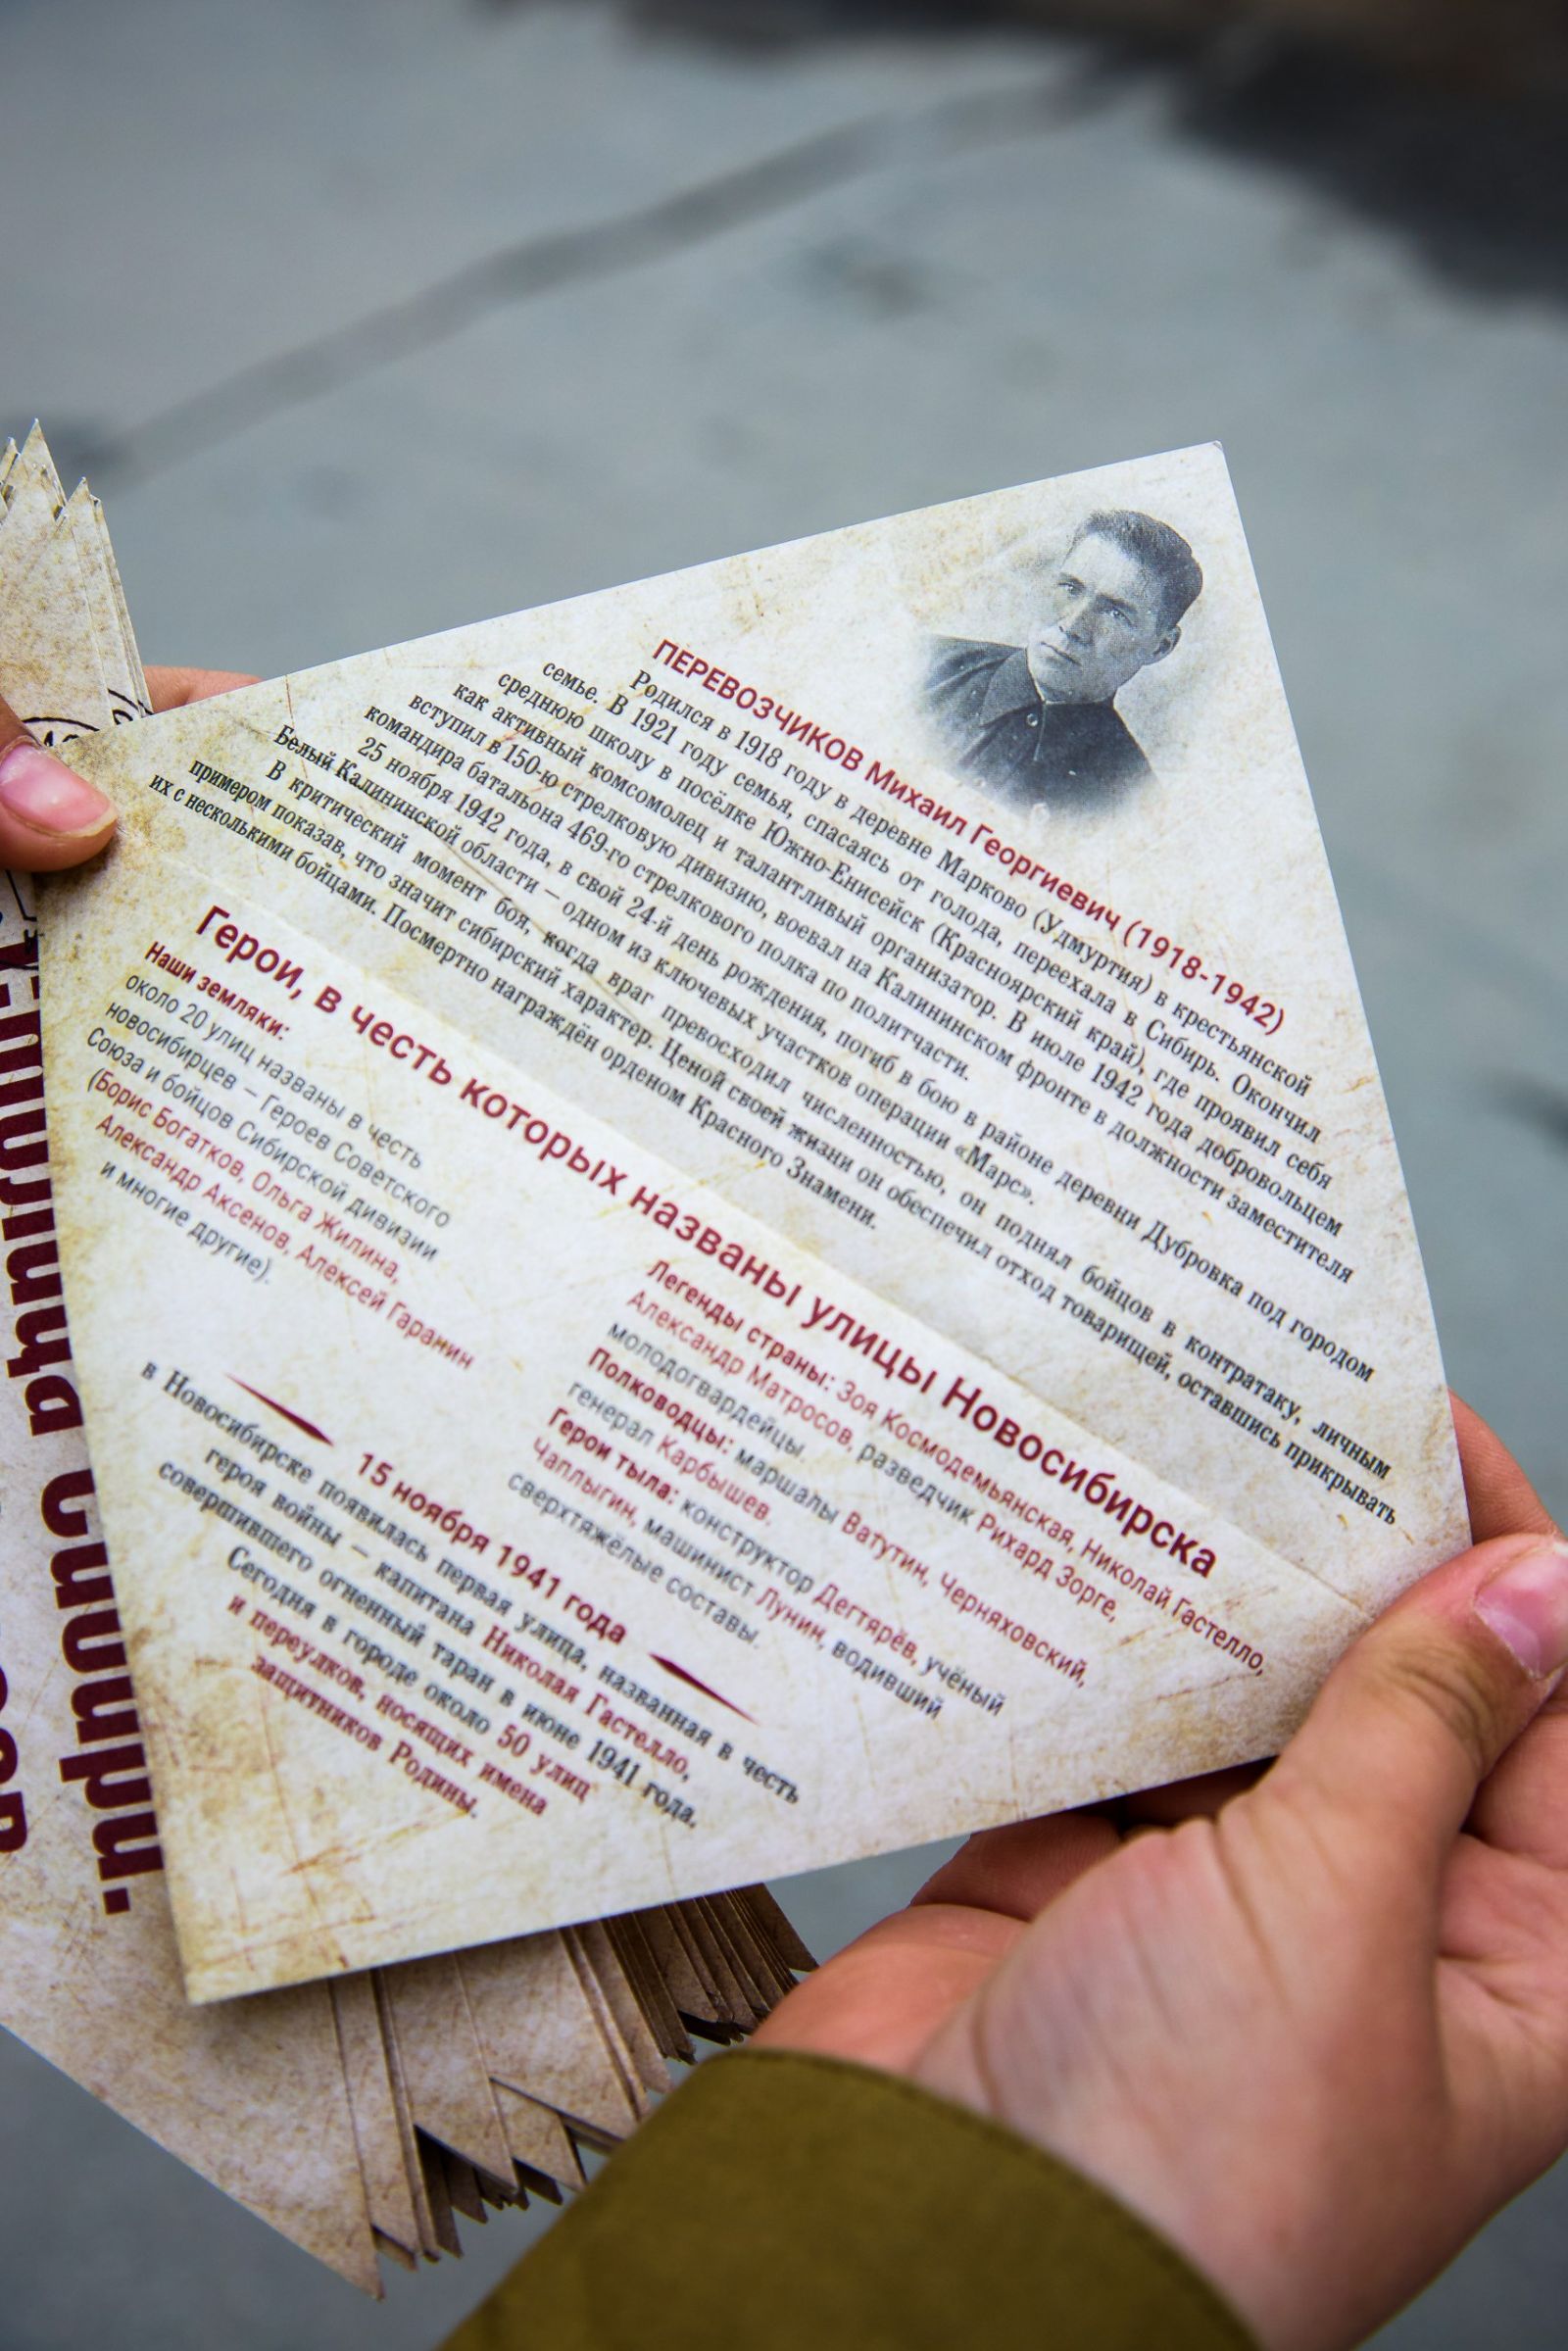 ПЕРЕВОЗЧИКОВ Михаил Георгиевич (1918-1942)
Родился в 1918 году в деревне Марково (Удмуртия) в крестьянской
семье. В 1921 году семья, спасаясь от голода, переехала в Сибирь. Окончил
среднюю школу в посёлке Южно-Енисейск (Красноярский край), где проявил себя
как активный комсомолец и талантливый организатор. В июле 1942 года добровольцем
вступил в 150-ю стрелковую дивизию, воевал на Калининском фронте в должности заместителя
командира батальона 469-го стрелкового полка по политчасти.
25 ноября 1942 года, в свой 24-й день рождения, погиб в бою в районе деревни Дубровка под городом
Белый Калининской области – одном из ключевых участков операции «Марс».
В критический момент боя, когда враг превосходил численностью, он поднял бойцов в контратаку, личным
примером показав, что значит сибирский характер. Ценой своей жизни он обеспечил отход товарищей, оставшись прикрывать
их с несколькими бойцами. Посмертно награждён орденом Красного Знамени.
Герои, в честь которых названы улицы Новосибирска
Наши земляки:
около 20 улиц названы в честь
новосибирцев – Героев Советского
Союза и бойцов Сибирской дивизии
(Борис Богатков, Ольга Жилина,
Александр Аксенов, Алексей Гаранин
и многие другие).
Легенды страны: Зоя Космодемьянская, Николай Гастелло,
Александр Матросов, разведчик Рихард Зорге,
молодогвардейцы.
Полководцы: маршалы Ватутин, Черняховский,
генерал Карбышев.
Герои тыла: конструктор Дегтярёв, учёный
Чаплыгин, машинист Лунин, водивший
сверхтяжёлые составы.
15 ноября 1941 года
в Новосибирске появилась первая улица, названная в честь
героя войны – капитана Николая Гастелло,
совершившего огненный таран в июне 1941 года.
Сегодня в городе около 50 улиц
и переулков, носящих имена
защитников Родины.